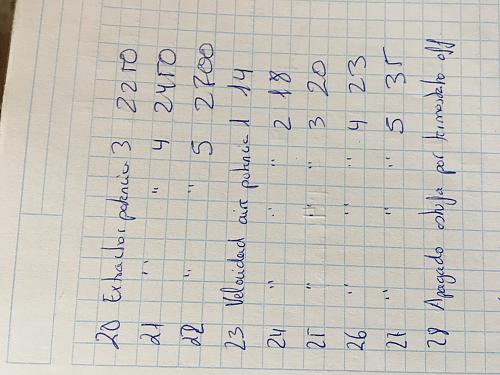 20 Extractor potencia 3 2250
21 " " 4 2450
22 " " 5 2700
23 Velocidad aire potencia 1 14
24 " " " 2 18
25 " " " 3 20
26 " " " 4 23
27 " " " 5 35
28 Apagado estufa por termostato off